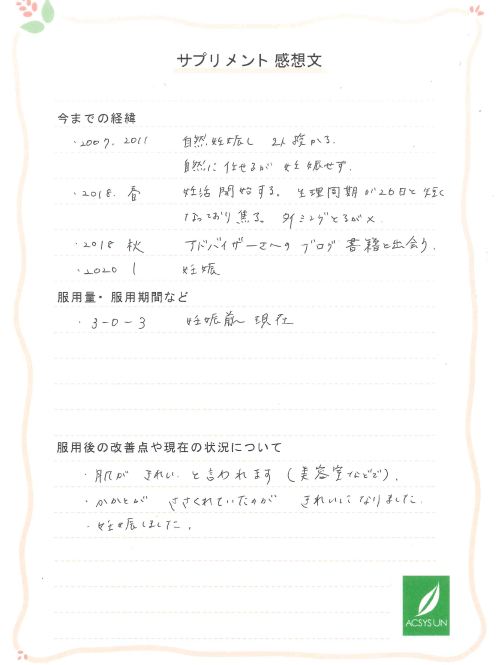 サプリメント 感想文
今までの経緯
・2007. 2011 自然妊娠し 2人授かる.
自然に任せるが 妊娠せず.
・2018. 春 妊活開始する。生理周期が26日と短く
なっており焦る。タイミングとるが×.
・2018 秋 アドバイザーさんの ブログ 書籍と出会う.
・2020 1 妊娠
服用量・服用期間など
・3-0-3 妊娠前〜現在
服用後の改善点や現在の状況について
・肌が きれい と言われます (美容室などで).
・かかとが ささくれていたのが きれいになりました.
・妊娠しました.
ACSYSUN